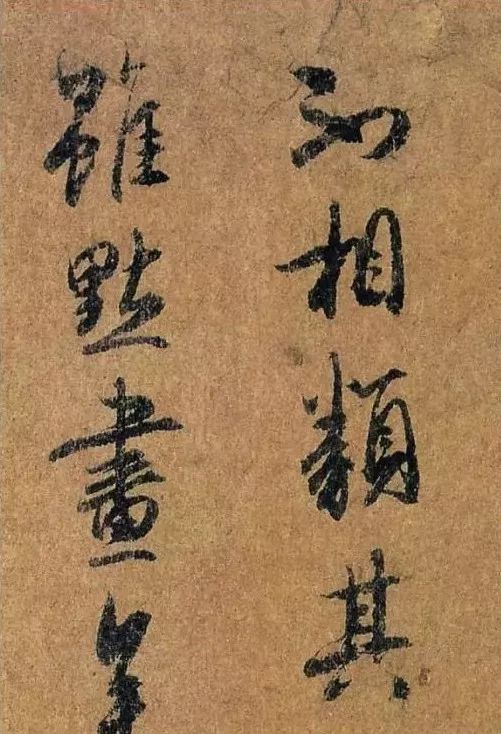 不相類其
雖點畫